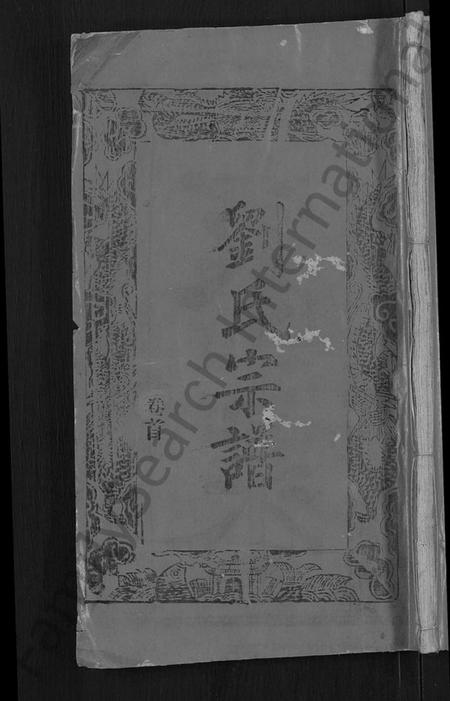 劉氏宗譜
卷首
FamilySearch International